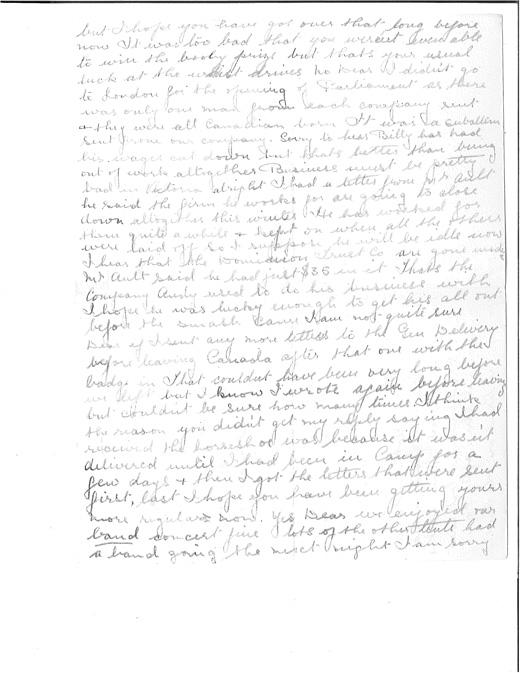 but I hope you have got over that long before
now It was too bad that you werent even able
to win the booby prize but thats your usual
luck at the whist drives No Dear I didn't go
to London for the opening of Parliament as there
was only one man from each company sent
+ they were all Canadian born It was a subaltern
sent from our company. Sorry to hear Billy has had
his wages cut down but thats better than being
out of work altogether Business must be pretty
bad in Victoria alright I had a letter from Mr Ault
he said the firm he works for are going to close
down altogether this winter He has worked for
them quite a while + kept on when all the others
were laid off so I suppose he will be idle now
I hear that the Dominion Trust Co are gone under
Mr Ault said he had just $35 in it Thats the
Company Andy used to do his business with
I hope he was lucky enough to get his all out
before the smash came I am not quite sure
Dear if I sent any more letters to the Gen Delivery
before leaving Canada after that one with the
badge in That couldnt have been very long before
we left but I know I wrote again before leaving
but couldn't be sure how many times I think
the reason you didn't get my reply saying I had
received the horseshoe was because it wasn't
delivered until I had been in Camp for a
few days + then I got the letters that were sent
first, last I hope you have been getting yours
more regular now. Yes Dear we enjoyed our
band concert fine lots of the other tents had
a band going the next night I am sorry